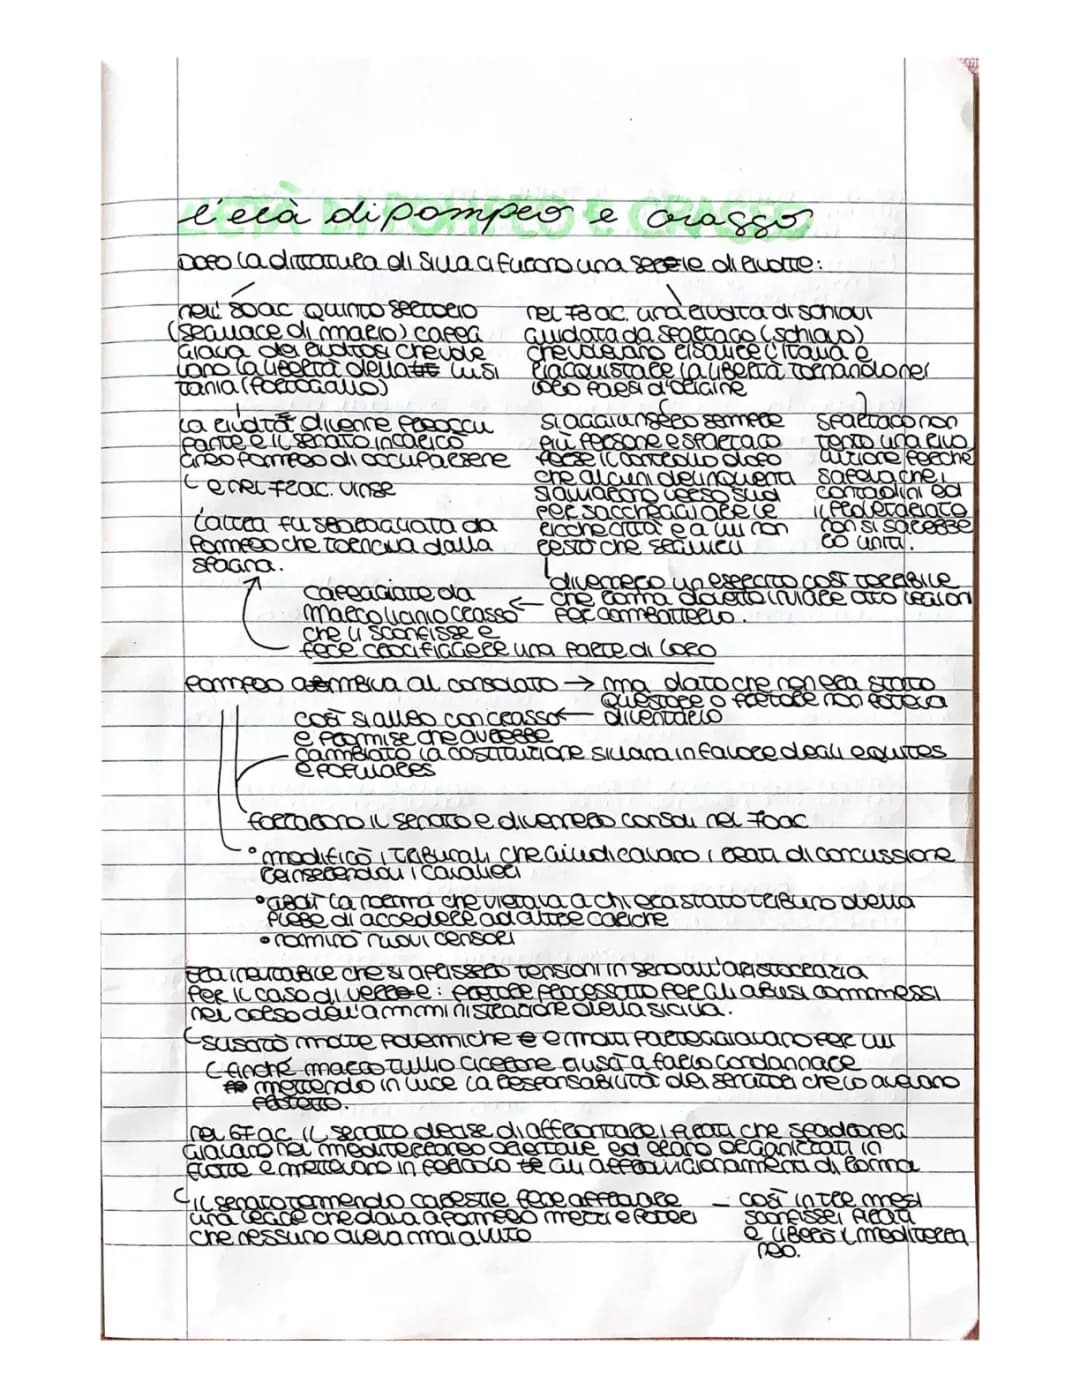 l'età di pompeo e crasso
Dopo la dittatura di Silla ci furono una serie di rivolte:
nell' 80ac Quinto Sertorio
(seguace di mario) capeg
giava dei rivoltosi che vole
vano la libertà della lusi
tania (Portogallo)
nel 73 ac. una rivolta di schiavi
guidata da Spartaco (schiavo)
che volevano risalire l'italia e
riacquistare la libertà tornando nei
loro paesi d'origine
La rivolta divenne preoccu
pante e il senato incaricò
Gneo Pompeo di occuparsene
e nel 72ac. vinse
si aggiungero sempre
più persone e spartaco
perse il controllo dopo
che alcuni delinquenti
siavviarono verso sud
per saccheggiare le
ricche città e a lui non
restò che seguirli
Spartaco non
tentò una rivo
luzione perchè
sapeva che i
contadini ed
il proletariato
non si sarebbe
ro uniti.
L'altra fu sbaragliata da
Pompeo che tornava dalla
spagna.
divennero un esercito così terribile
che Roma dovette inviare otto legioni
per combatterlo.
capeggiate da
Marco licinio Crasso
che li sconfisse e
fece crocifiggere una parte di loro
Pompeo ambiva al consolato → ma dato che non era stato
questore o pretore non poteva
diventarlo
così si alleò con crasso
e promise che avrebbe
cambiato la costituzione sillana in favore degli equites
e populares
forzarono il senato e divennero consoli nel 70ac
• modificò i tribunali che giudicavano i reati di concussione
reinserendoli i cavalieri
• abolì la norma che vietava a chi era stato tribuno della
plebe di accedere ad altre cariche
• nominò nuovi censori
Era inevitabile che si aprissero tensioni in seno all'aristocrazia
Per il caso di verre: pretore processato per gli abusi commmessi
nel corso dell'amministrazione della sicilia.
suscitò molte polemiche e molti parteggiavano per lui
Anche marco Tullio Cicerone riuscì a farlo condannare
mettendo in luce la responsabilità dei senatori che lo avevano
protetto.
nel 67ac il senato decise di affrontare i pirati che spadroneg
giavano nel mediterraneo orientale ed erano organizzati in
flotte e mettevano in pericolo gli approvigionamenti di Roma
il senato temendo carestie fece approvare
una legge che dava a Pompeo mezzi e poteri
che nessuno aveva mai avuto
così in tre mesi
sconfisse i pirati
e liberò il mediterra
neo.